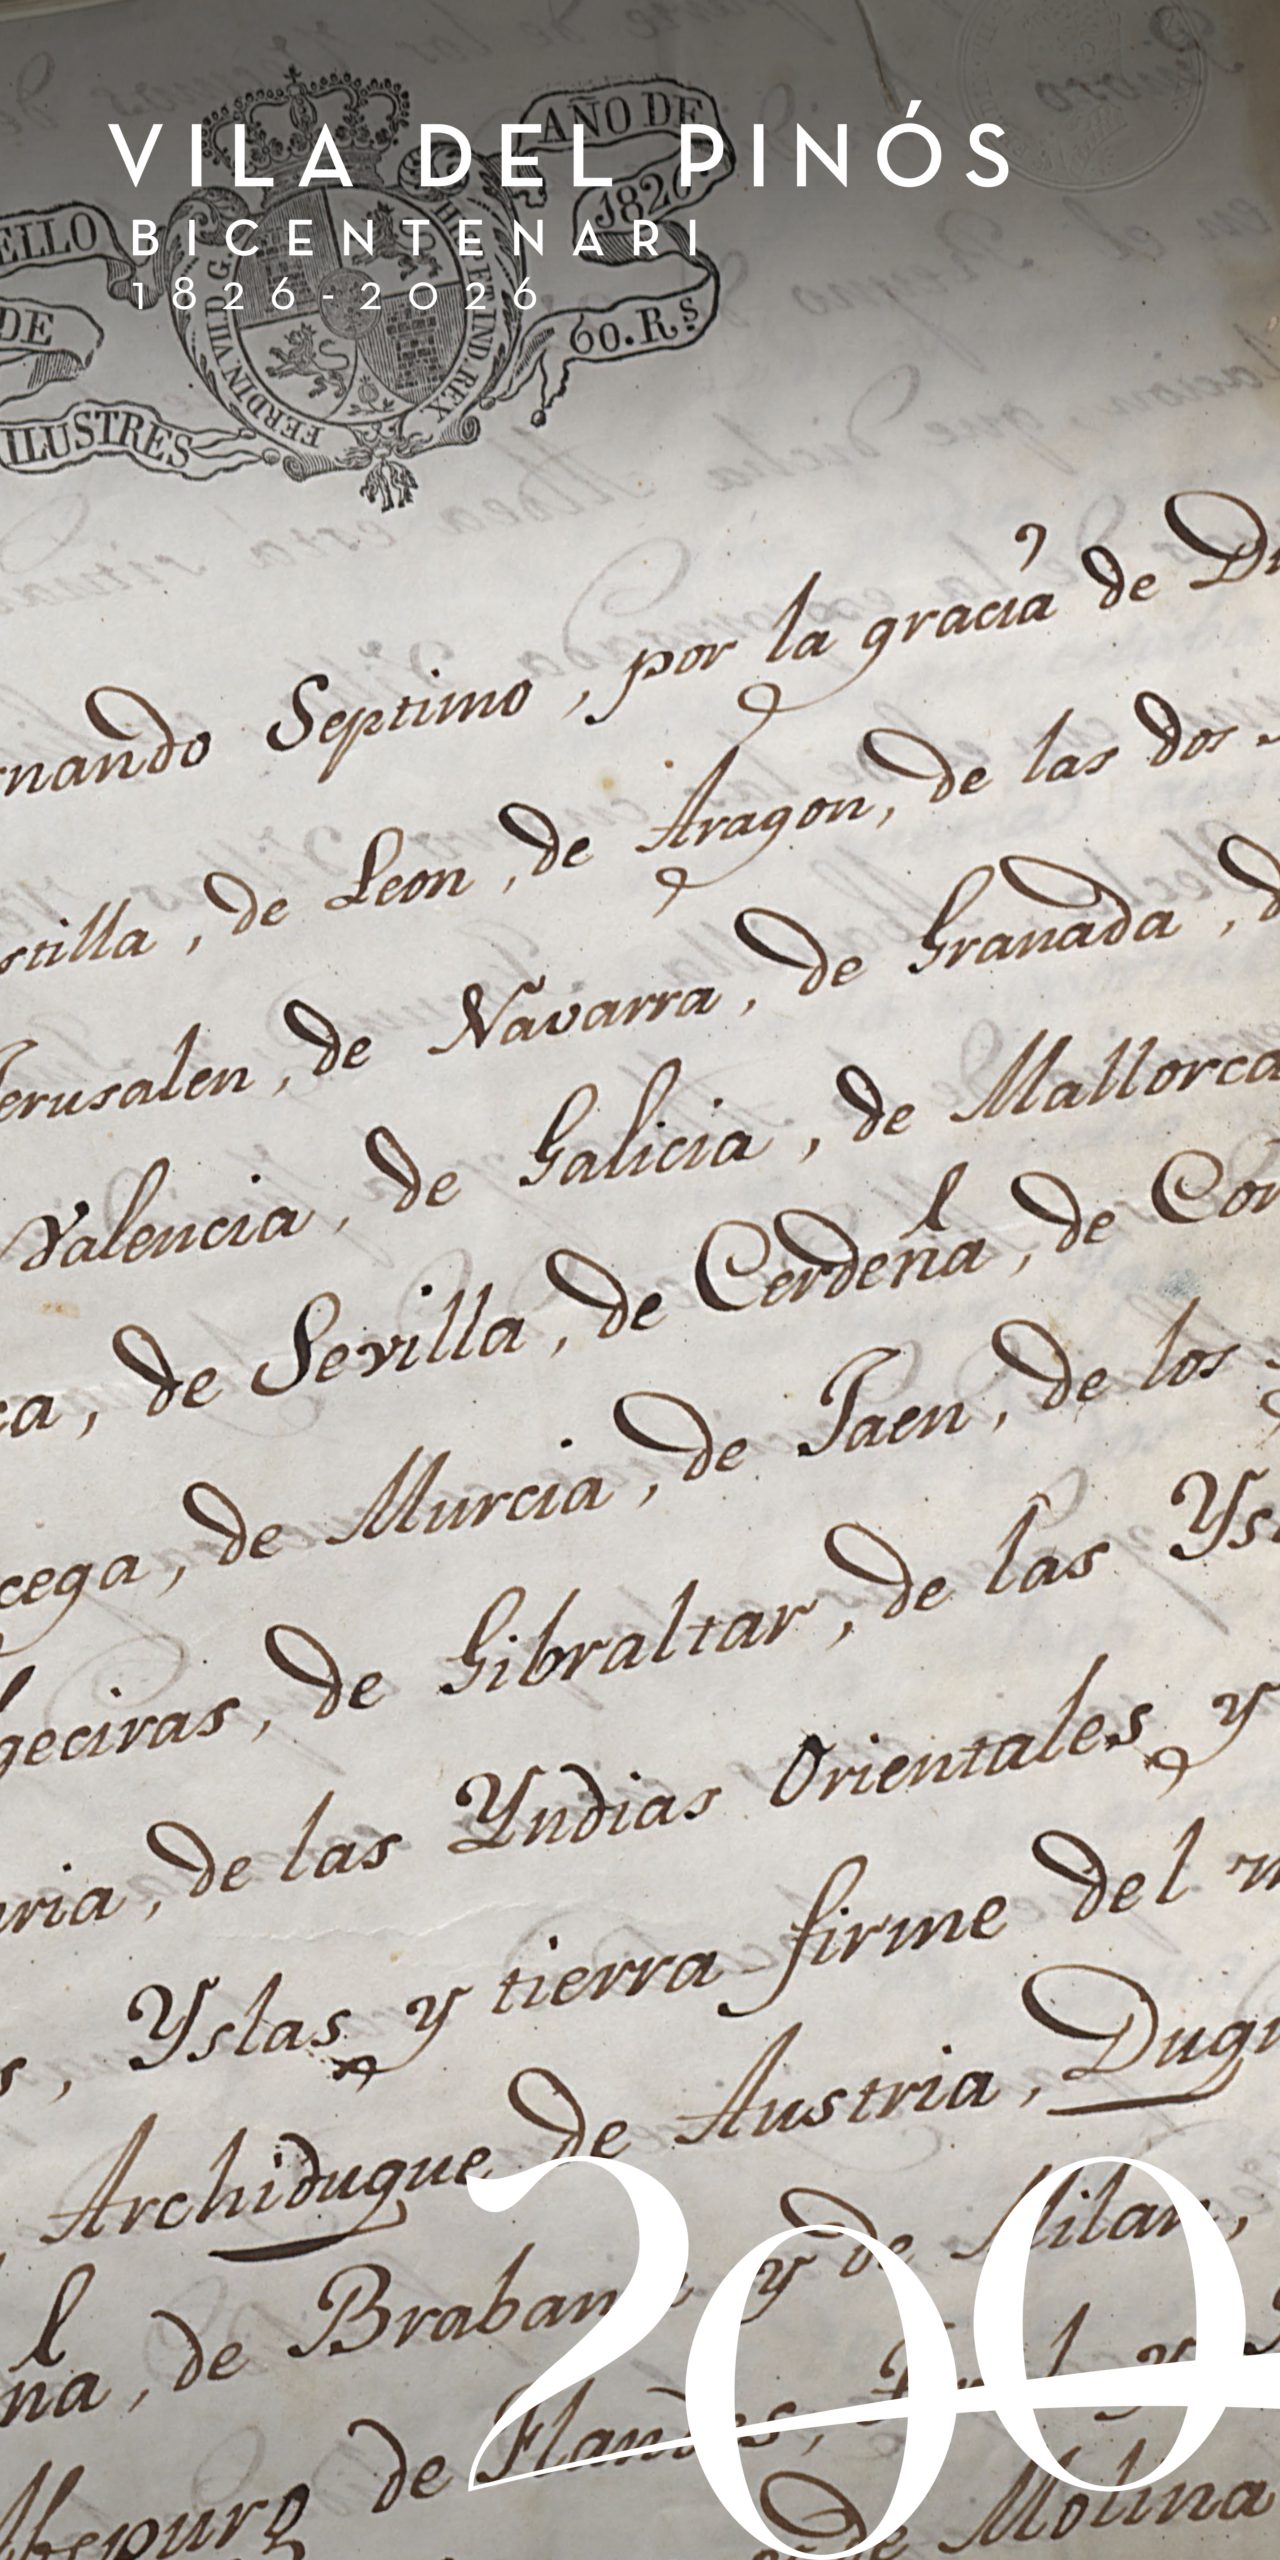 VILA DEL PINÓS
BICENTENARI
1826-2026
AÑO DE
1826
ELLO
DE
60. Rs
ILUSTRES
FERDIN. VII D. G.
HISP. ET IND. REX
rnando Septimo, por la gracia de Di
stilla, de Leon, de Aragon, de las dos
Jerusalen, de Navarra, de Granada, d
Valencia, de Galicia, de Mallorca
ca, de Sevilla, de Cerdeña, de Cor
cega, de Murcia, de Jaen, de los
lgeciras, de Gibraltar, de las Ysl
aria, de las Yndias Orientales y
s, Yslas y tierra firme del m
Archiduque de Austria, Duqu
ña, de Braban y de Milan,
Abspurg de Flandes, y
de Molina
200